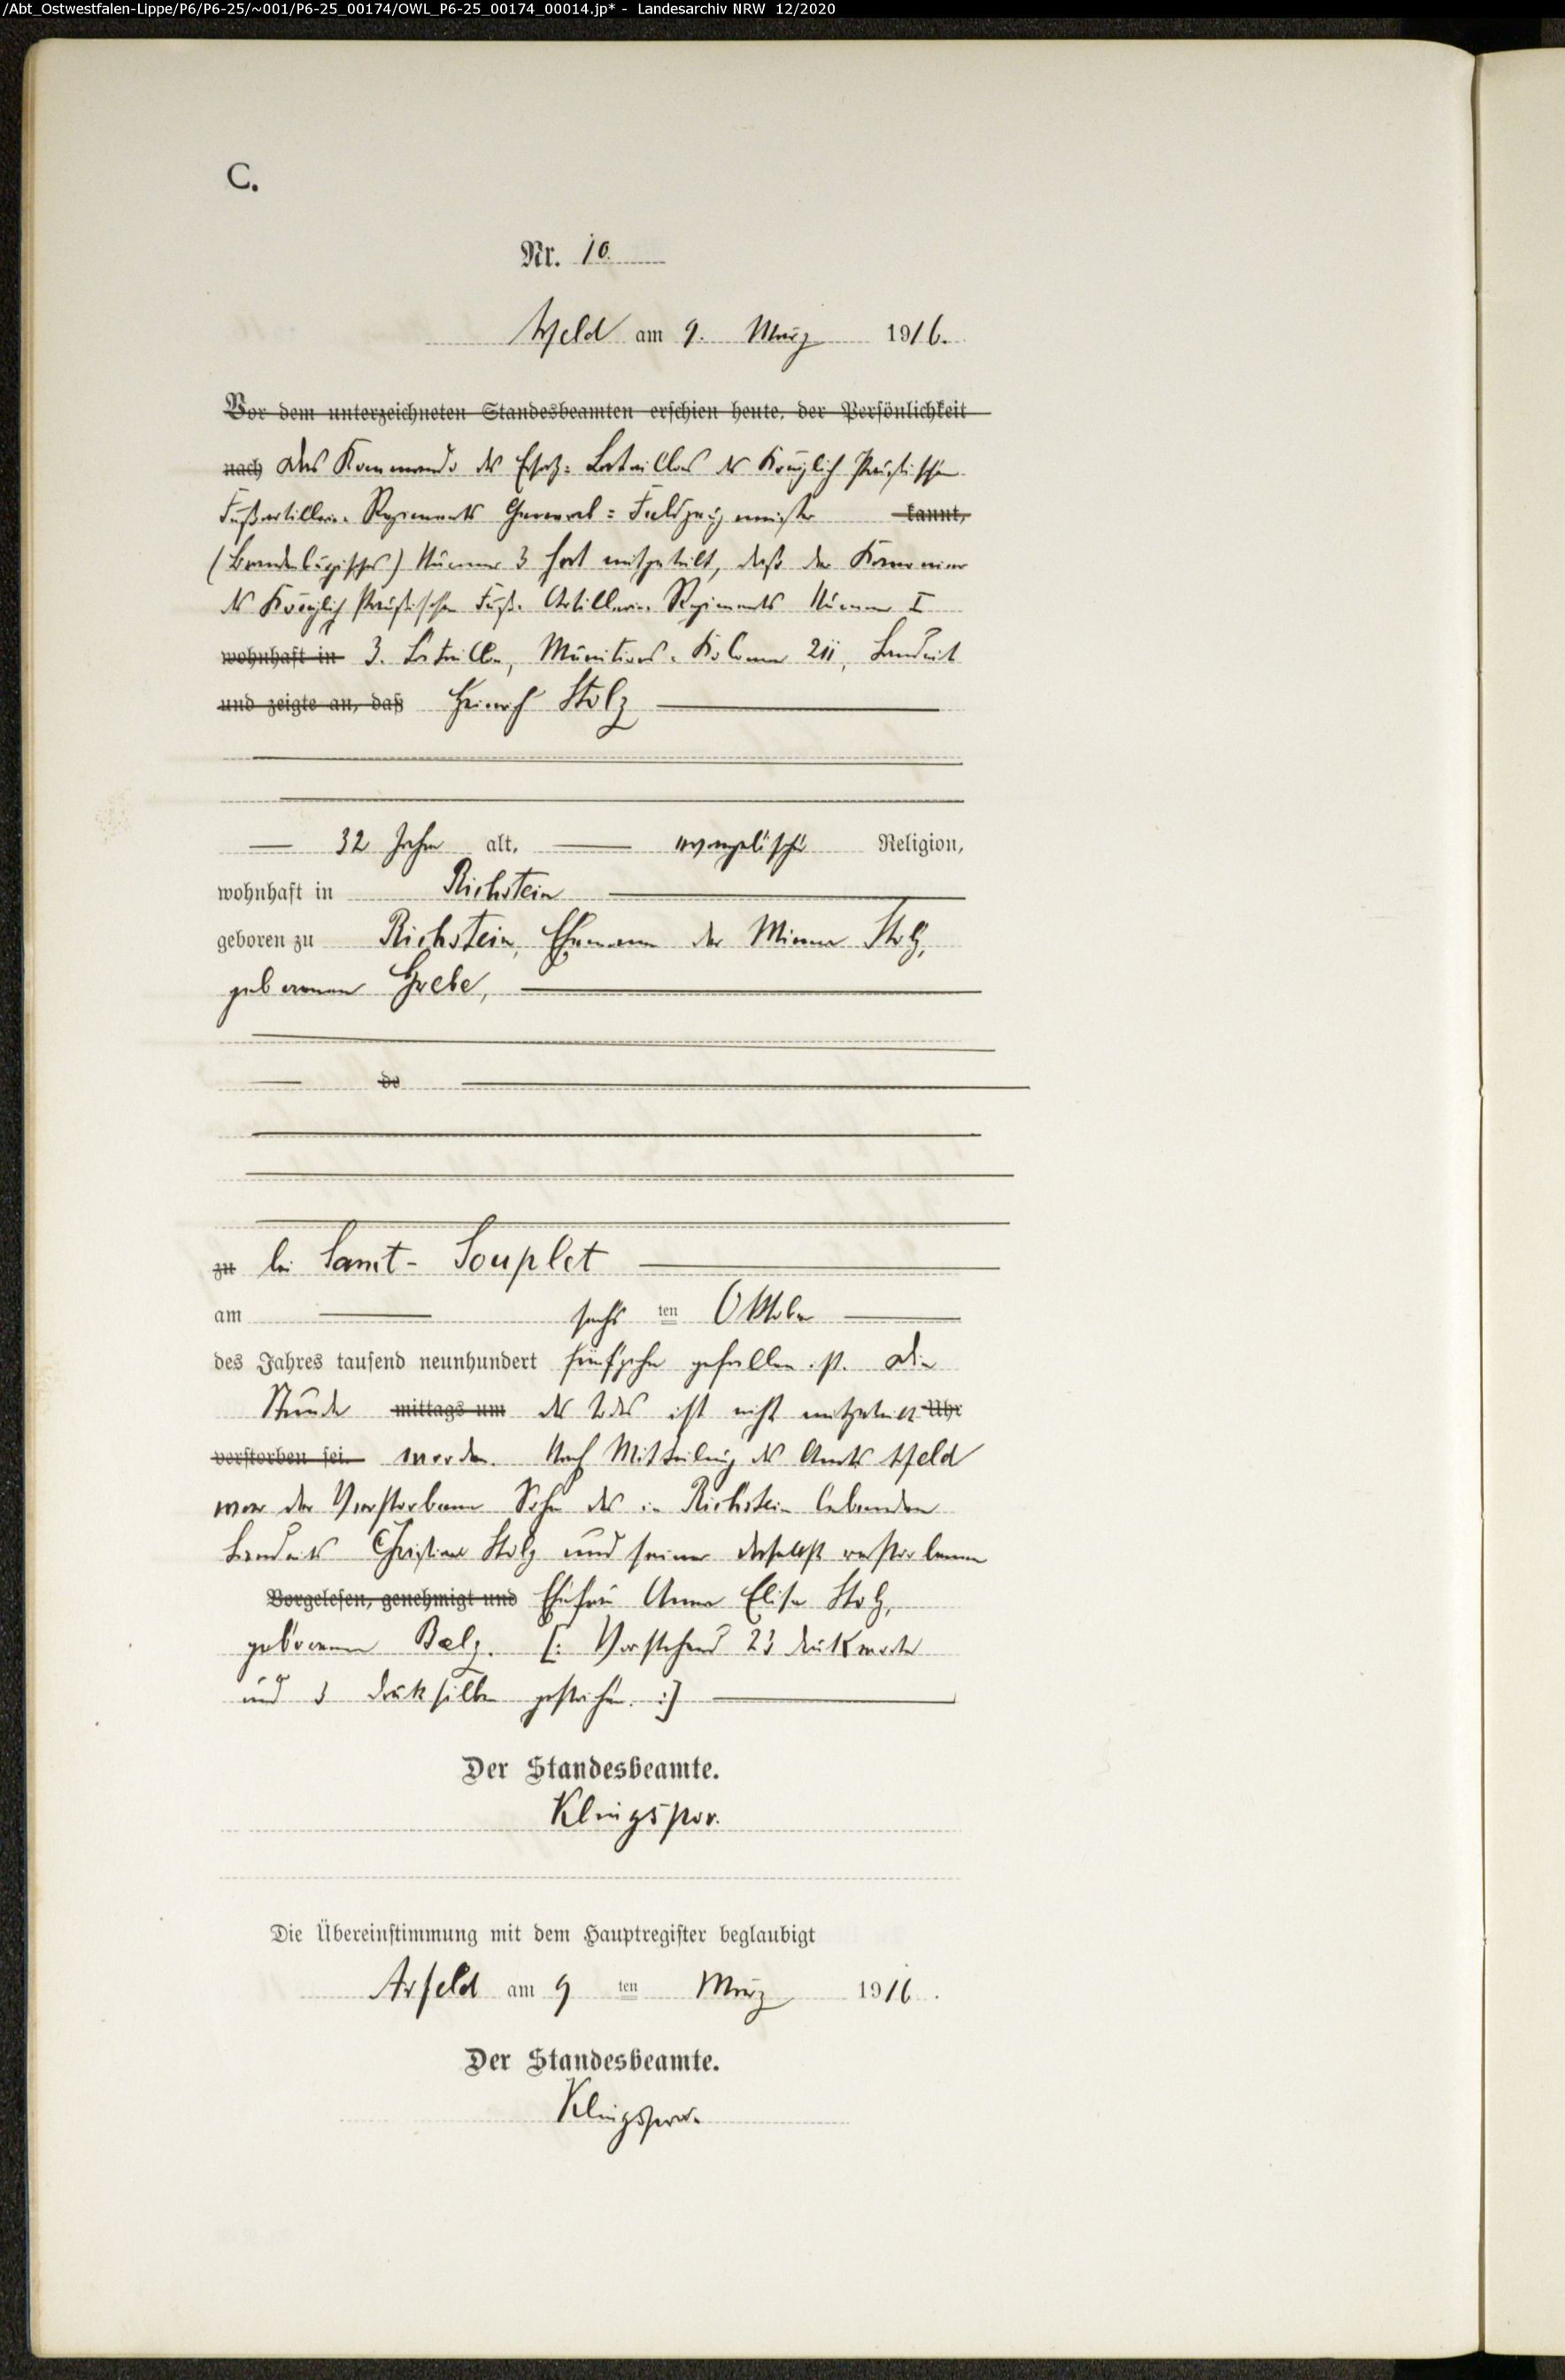 /Abt_Ostwestfalen-Lippe/P6/P6-25/~001/P6-25_00174/OWL_P6-25_00174_00014.jp* - Landesarchiv NRW 12/2020
C.
Nr. 10.
Arfeld am 9. März 1916.
Vor dem unterzeichneten Standesbeamten erschien heute, der Persönlichkeit
nach Das Kommando des Ersatz-Bataillons des Königlich Preußischen
Fußartillerie-Regiments General-Feldzeugmeister kannt,
(Brandenburgisches) Nummer 3 hat mitgeteilt, daß der Kanonier
des Königlich Preußischen Fuß-Artillerie-Regiments Nummer I
wohnhaft in 3. Bataillon, Munitions-Kolonne 211, Landwirt
und zeigte an, daß Heinrich Stolz
32 Jahre alt, evangelischer Religion,
wohnhaft in Richstein
geboren zu Richstein, Ehemann der Minna Stolz,
geborenen Grebe,
de
zu bei Sanct-Souplet
am sechs ten Oktober
des Jahres tausend neunhundert fünfzehn gefallen ist. Die
Stunde mittags um des Todes ist nicht mitgeteilt Uhr
verstorben sei. worden. Nach Mitteilung des Amts Arfeld
war der Verstorbene Sohn des in Richstein lebenden
Landwirts Christian Stolz und seiner daselbst verstorbenen
Vorgelesen, genehmigt und Ehefrau Anna Elise Stolz,
geborenen Balz. [: Vorstehend 23 Druckworte
und 3 Drucksilben gestrichen. :]
Der Standesbeamte.
Klingspor.
Die Übereinstimmung mit dem Hauptregister beglaubigt
Arfeld am 9 ten März 1916.
Der Standesbeamte.
Klingspor.